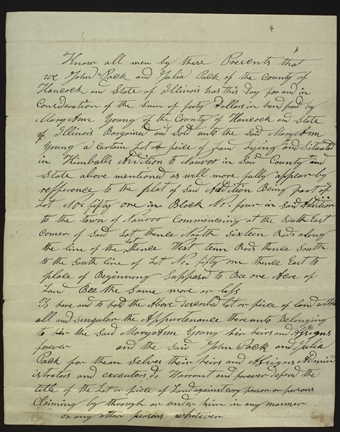 Know all men by these Presents that
we John Pack and Julia Pack of the County of
Hancock and State of Illinois has this day for and in
Consideration of the Sum of forty Dollars in hand paid by
MaryAnn Young of the County of Hancock and State
of Illinois Bargained and Sold unto the Said MaryAnn
Young a Certain Lot or piece of Land Lying and Situated
in Kimballs Adition to Nauvoo in Said County and
State above mentioned as will more fully appear by
refference to the plat of Said Adition Being part of
Lot No fifty one in Block No four in Said Adition
to the town of Nauvoo Commencing at the South East
corner of Said Lot thence North Sixteen Rods along
the line of the thence West tenn Rods thence South
to the South line of Lot No fifty one thence East to
place of Beginning Supposed to Bee one Acre of
Land Bee the Same more or less
To have and to hold the Above described Lot or piece of land with
all and Singular the Appurtenance there unto Belonging
to the Said MaryAnn Young hir heirs and Assigns
forever and the Said John Pack and Julia
Pack for them Selves their heirs and Assigns Admin
istrators and executors do Warrant and forever defend the
title of the Lot or piece of Land against every person or persons
Claiming by through or under him in any manner
or any other persons whatever